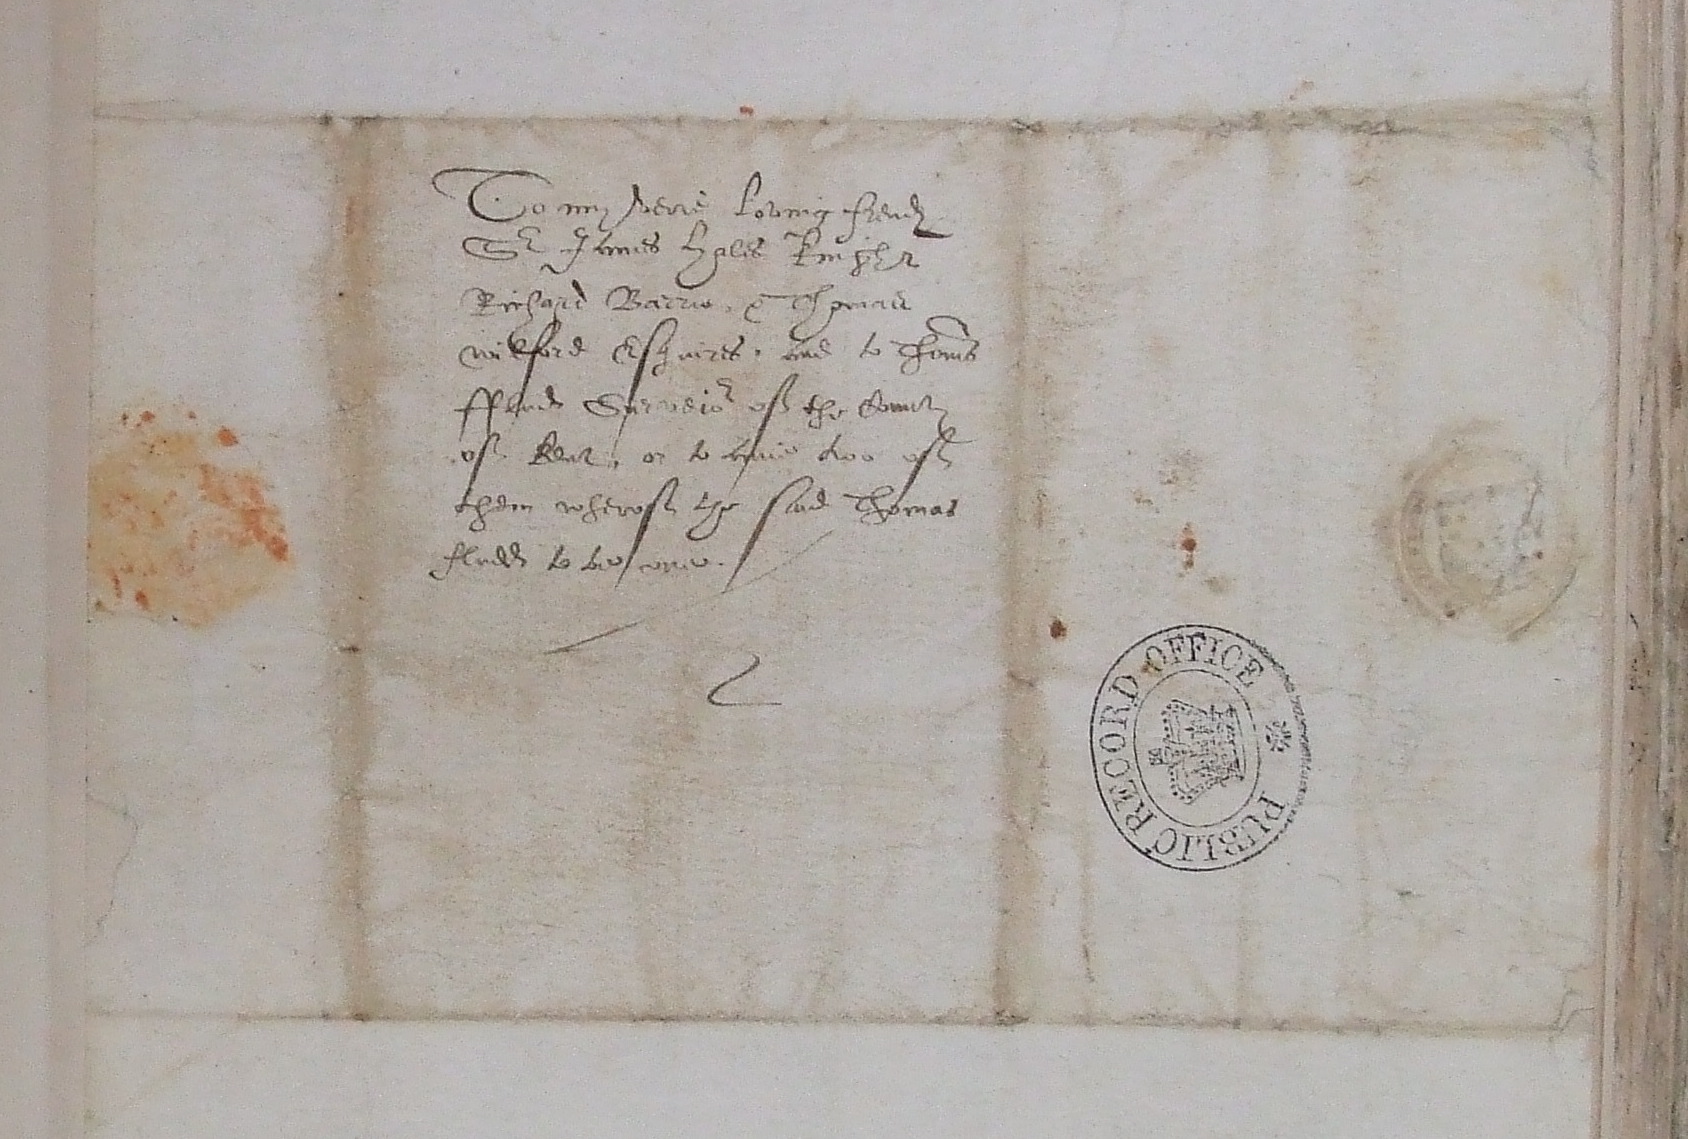 To my verie loving frends
Sr James Hales Knight
Richard Barrie, & Thomas
wilford Esquires, and to Thoms
ffludd Surveior of the County
of Kent, or to anie two of
them wherof the said Thomas
fludd to be one.
PUBLIC RECORD OFFICE